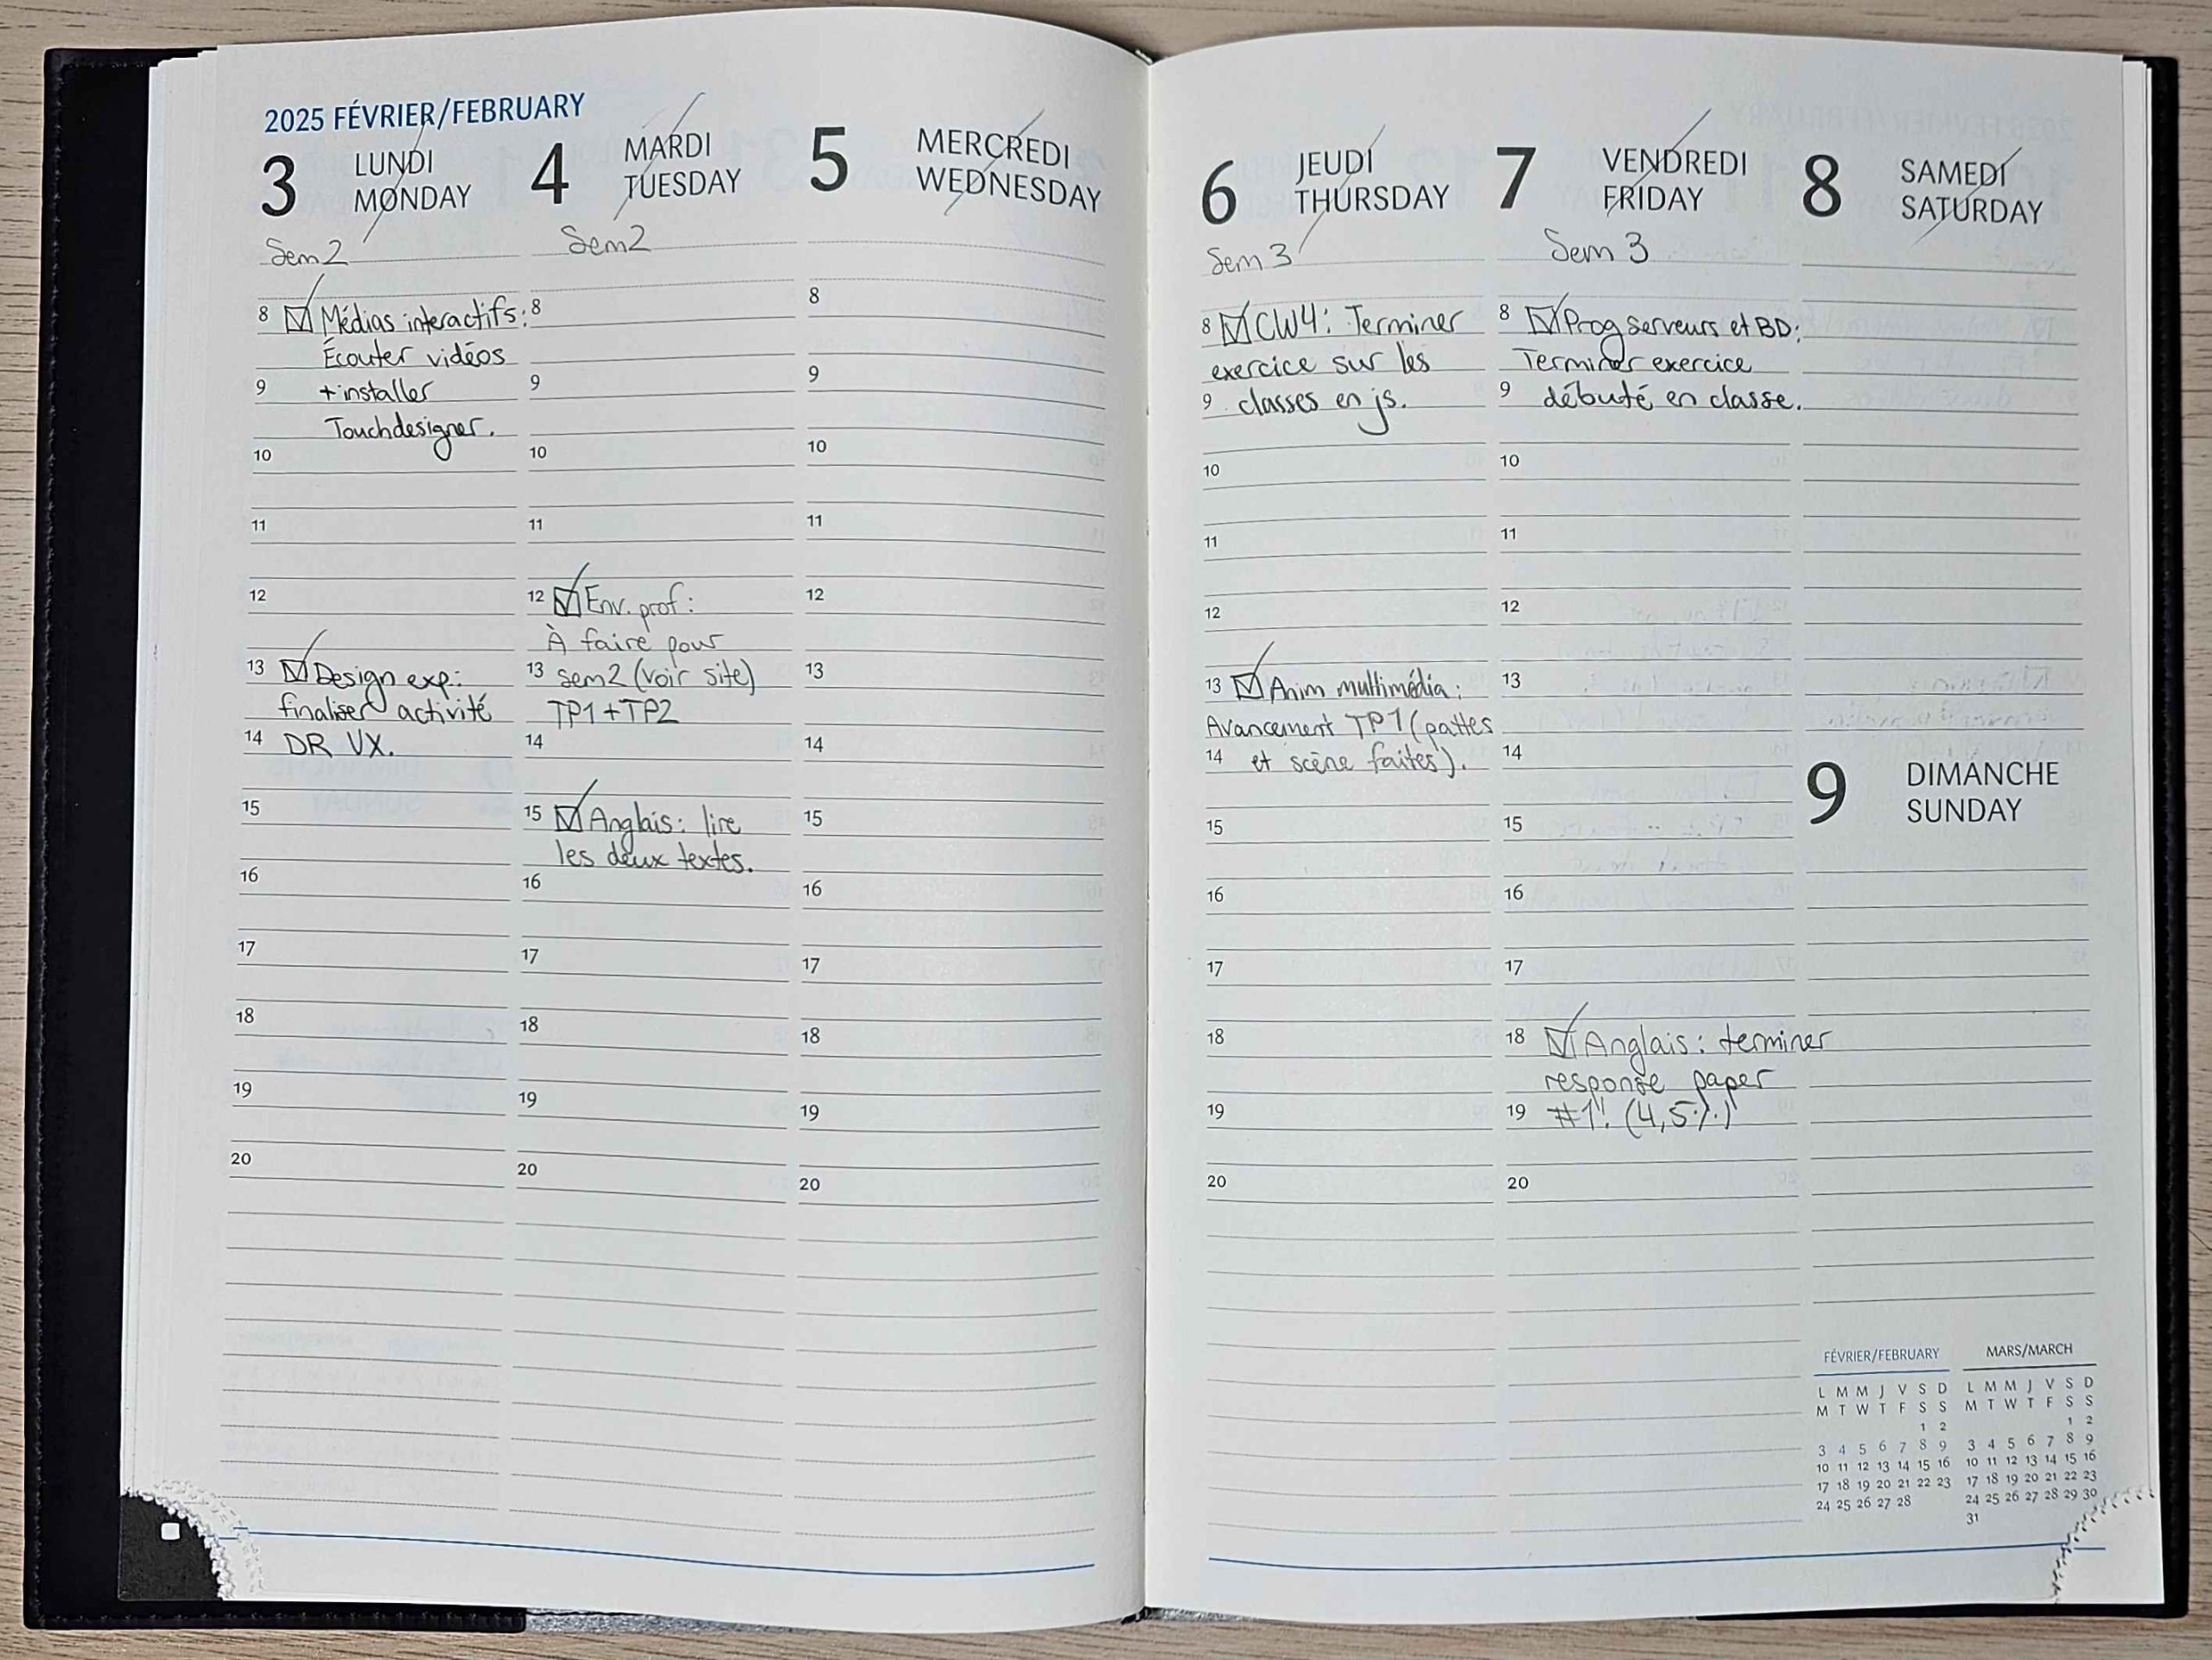 2025 FÉVRIER/FEBRUARY
3 LUNDI
MONDAY
Sem 2
8 Médias interactifs:
Écouter vidéos
9 + installer
Touchdesigner.
10
11
12
13 Design exp.:
finaliser activité
14 DR UX.
15
16
17
18
19
20
4 MARDI
TUESDAY
Sem 2
8
9
10
11
12 Env. prof:
À faire pour
13 sem2 (voir site)
TP1 + TP2
14
15 Anglais: lire
les deux textes.
16
17
18
19
20
5 MERCREDI
WEDNESDAY
8
9
10
11
12
13
14
15
16
17
18
19
20
6 JEUDI
THURSDAY
Sem 3
8 CW4: Terminer
exercice sur les
9 classes en js.
10
11
12
13 Anim multimédia:
Avancement TP1 (pattes
14 et scène faites).
15
16
17
18
19
20
7 VENDREDI
FRIDAY
Sem 3
8 Prog serveurs et BD:
Terminer exercice
9 débuté en classe.
10
11
12
13
14
15
16
17
18 Anglais: terminer
response paper
19 #1! (4,5%)
20
8 SAMEDI
SATURDAY
9 DIMANCHE
SUNDAY
FÉVRIER/FEBRUARY
L M M J V S D
M T W T F S S
1 2
3 4 5 6 7 8 9
10 11 12 13 14 15 16
17 18 19 20 21 22 23
24 25 26 27 28
MARS/MARCH
L M M J V S D
M T W T F S S
1 2
3 4 5 6 7 8 9
10 11 12 13 14 15 16
17 18 19 20 21 22 23
24 25 26 27 28 29 30
31